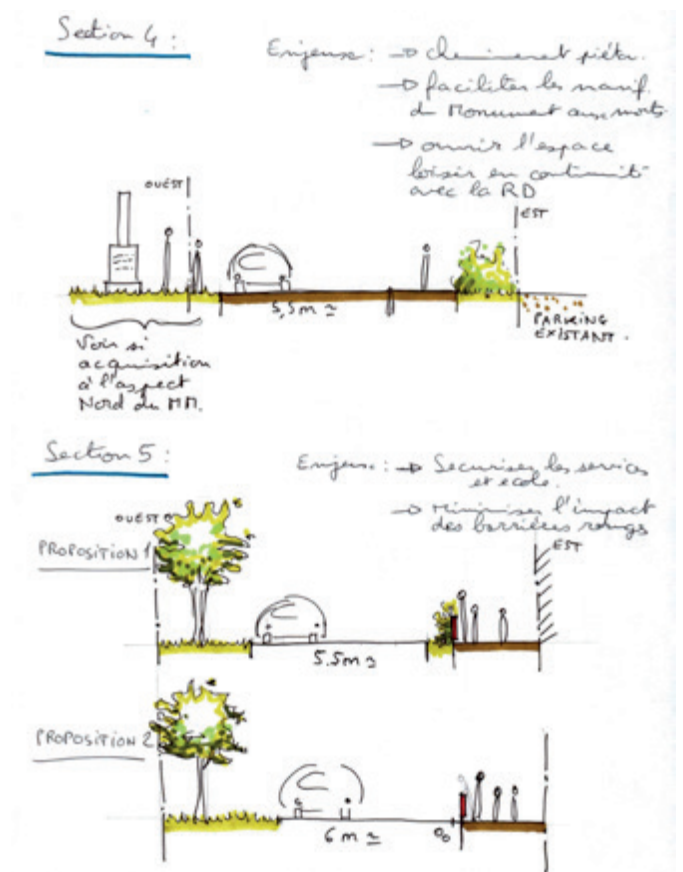 Section 4 :
Enjeux : → cheminement piéton.
→ faciliter les manif.
du Monument aux morts
→ ouvrir l'espace
loisir en continuité
avec la RD
OUEST
EST
5,5m ≃
PARKING
EXISTANT.
Voir si
acquisition
à l'aspect
Nord du MM.
Section 5 :
Enjeux : → Securiser les services
et ecole.
→ Minimiser l'impact
des barrières rouges
OUEST
EST
PROPOSITION 1
5.5m ≃
PROPOSITION 2
6 m ≃